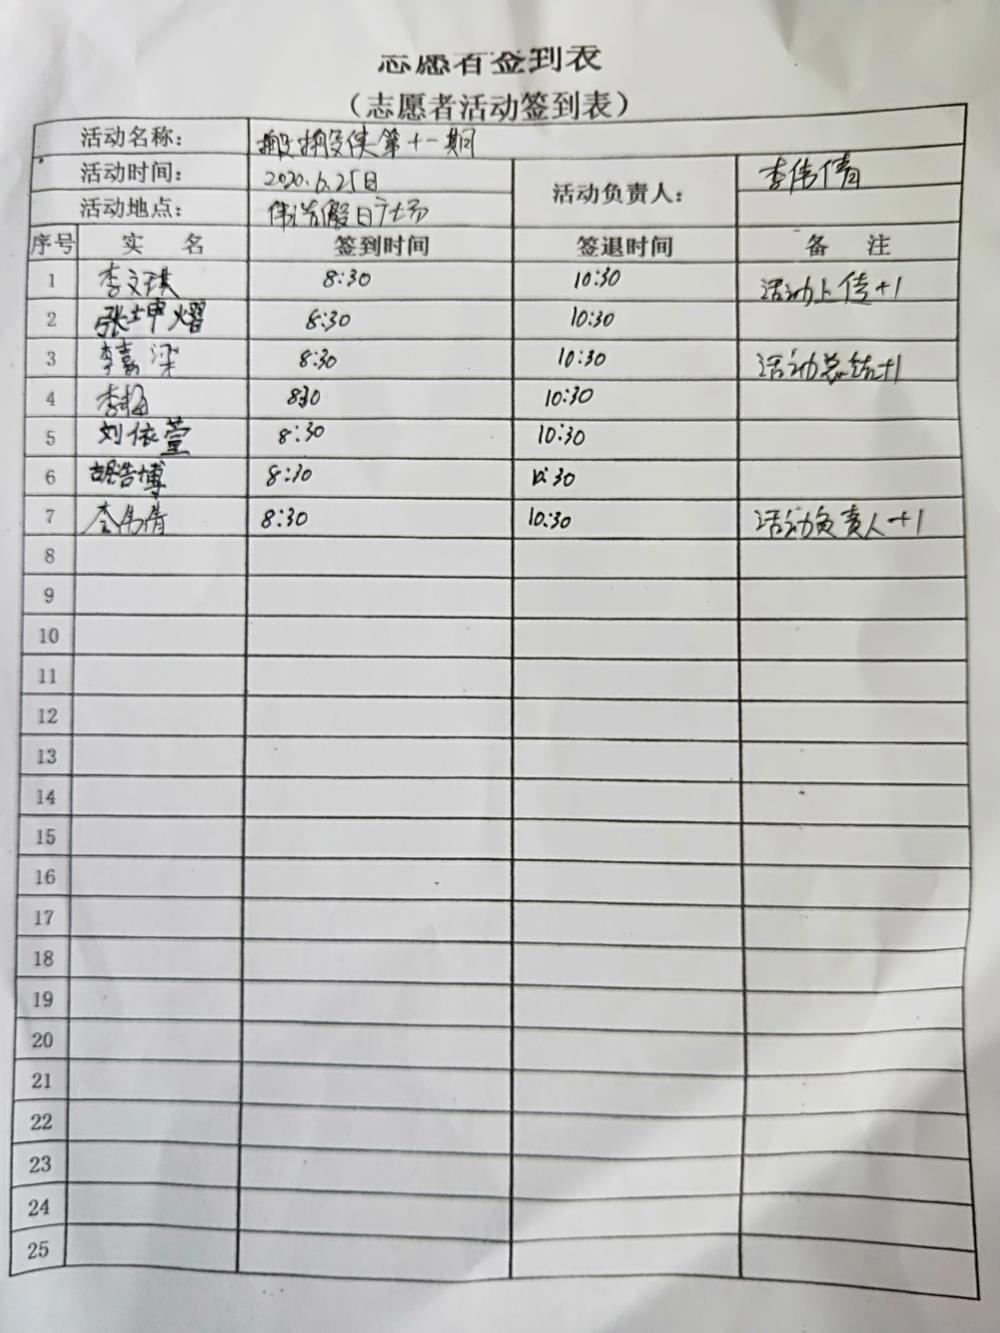 志愿者签到表
（志愿者活动签到表）
活动名称： 搬搬侠第十一期
活动时间： 2020.6.25日 活动负责人： 李伟倩
活动地点： 伟浩假日广场
序号 实 名 签到时间 签退时间 备 注
1 李文琪 8:30 10:30 活动上传+1
2 8:30 10:30
3 李嘉梁 8:30 10:30 活动总结+1
4 李梅 830 10:30
5 刘依萱 8:30 10:30
6 胡浩博 8:30 10:30
7 李伟倩 8:30 10:30 活动负责人+1
8
9
10
11
12
13
14
15
16
17
18
19
20
21
22
23
24
25